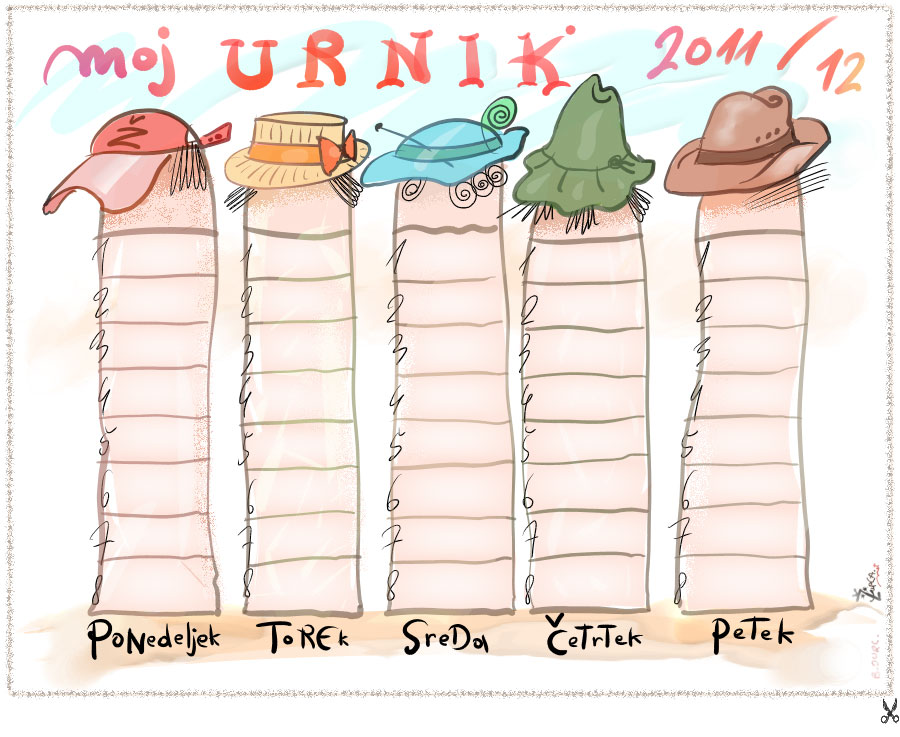 moj URNIK 2011/12
Ž
1 1 1 1 1
2 2 2 2 2
3 3 3 3 3
4 4 4 4 4
5 5 5 5 5
6 6 6 6 6
7 7 7 7 7
8 8 8 8 8
PoNedeljek ToREk SreDa ČetrTek PeTek